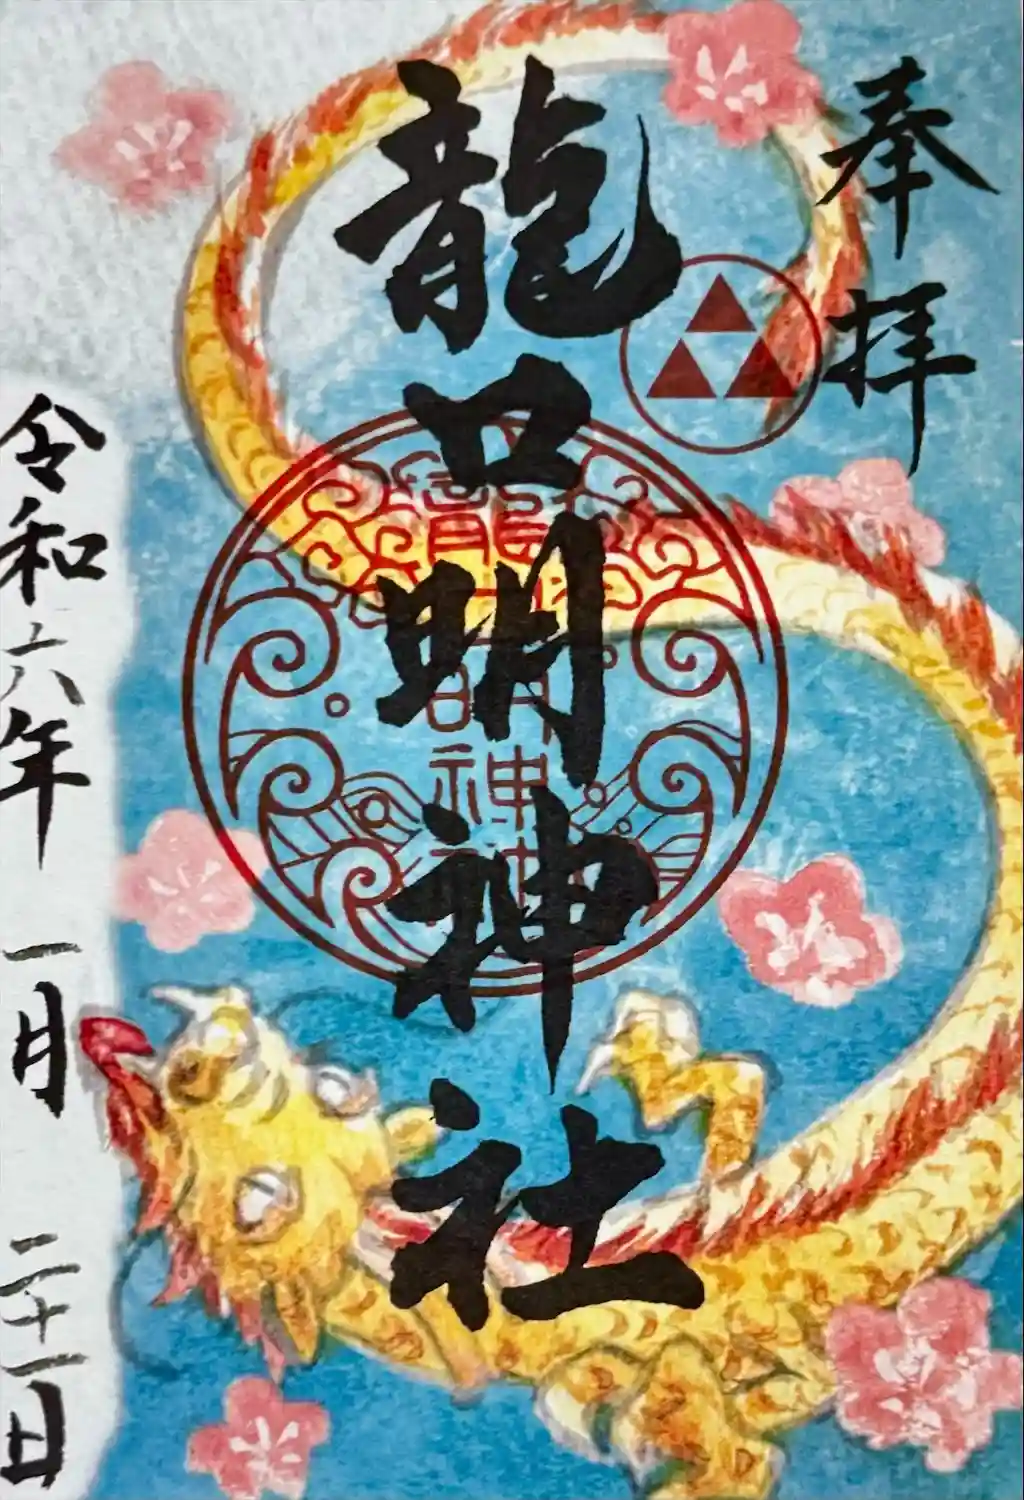 奉拝
龍口明神社
令和六年 一月 二十一日
龍
明
神